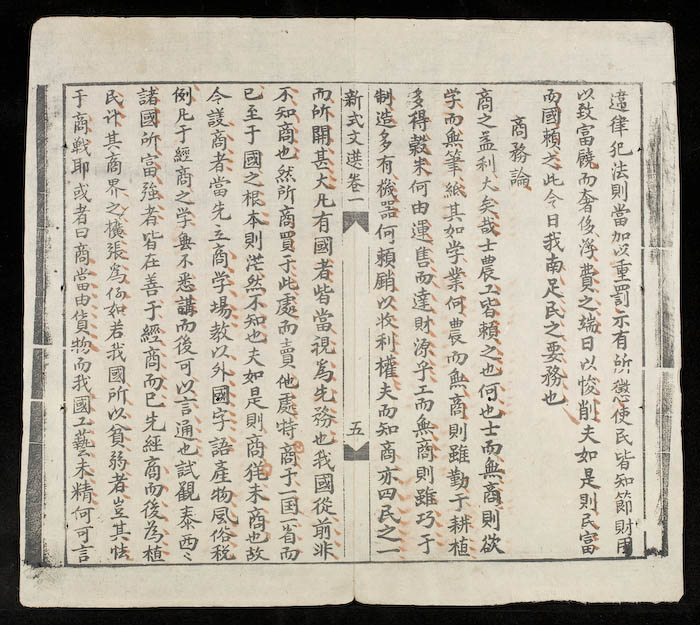 違律犯法則當加以重罰示有所懲使民皆知節財用
以致富饒而奢侈浮費之端日以悛削夫如是則民富
而國賴之此今日我南足民之要務也
商務論
商之益利大矣哉士農工皆賴之也何也士而無商則欲
学而無筆紙其如学業何農而無商則雖勤于耕植
多得穀米何由運售而達財源乎工而無商則雖巧于
制造多有機器何賴銷以收利權夫而知商亦四民之一
新式文選卷一
五
而所開甚大凡有國者皆當視為先務也我國從前非
不知商也然所商買于此處而賣他處特商于一国一省而
已至于國之根本則茫然不知也夫如是則商犹未商也故
今護商者當先立商学場教以外國字語產物風俗稅
例凡于經商之学無不悉講而後可以言通也試觀泰西〻
諸國所富強者皆在善于經商而已先經商而後為植
民计其商界之擴張為何如若我國所以貧弱者豈其怯
于商戰耶或者曰商當由貨物而我國工藝未精何可言